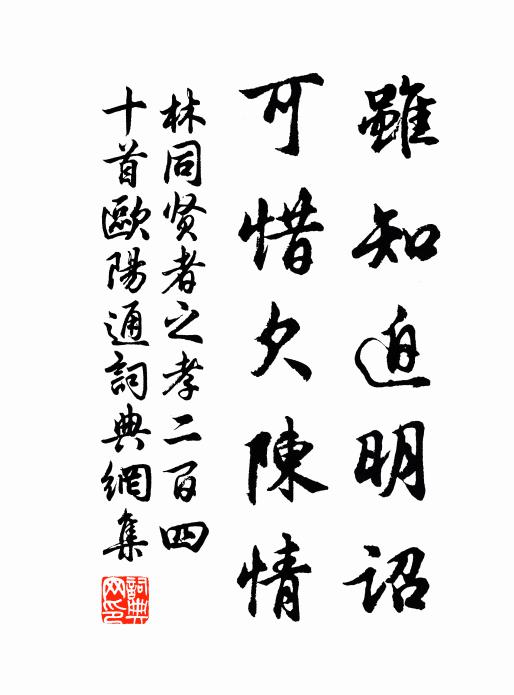 雖知迫明詔
可惜欠陳情
林同贤者之孝二百四
十首歐陽通詞典網集